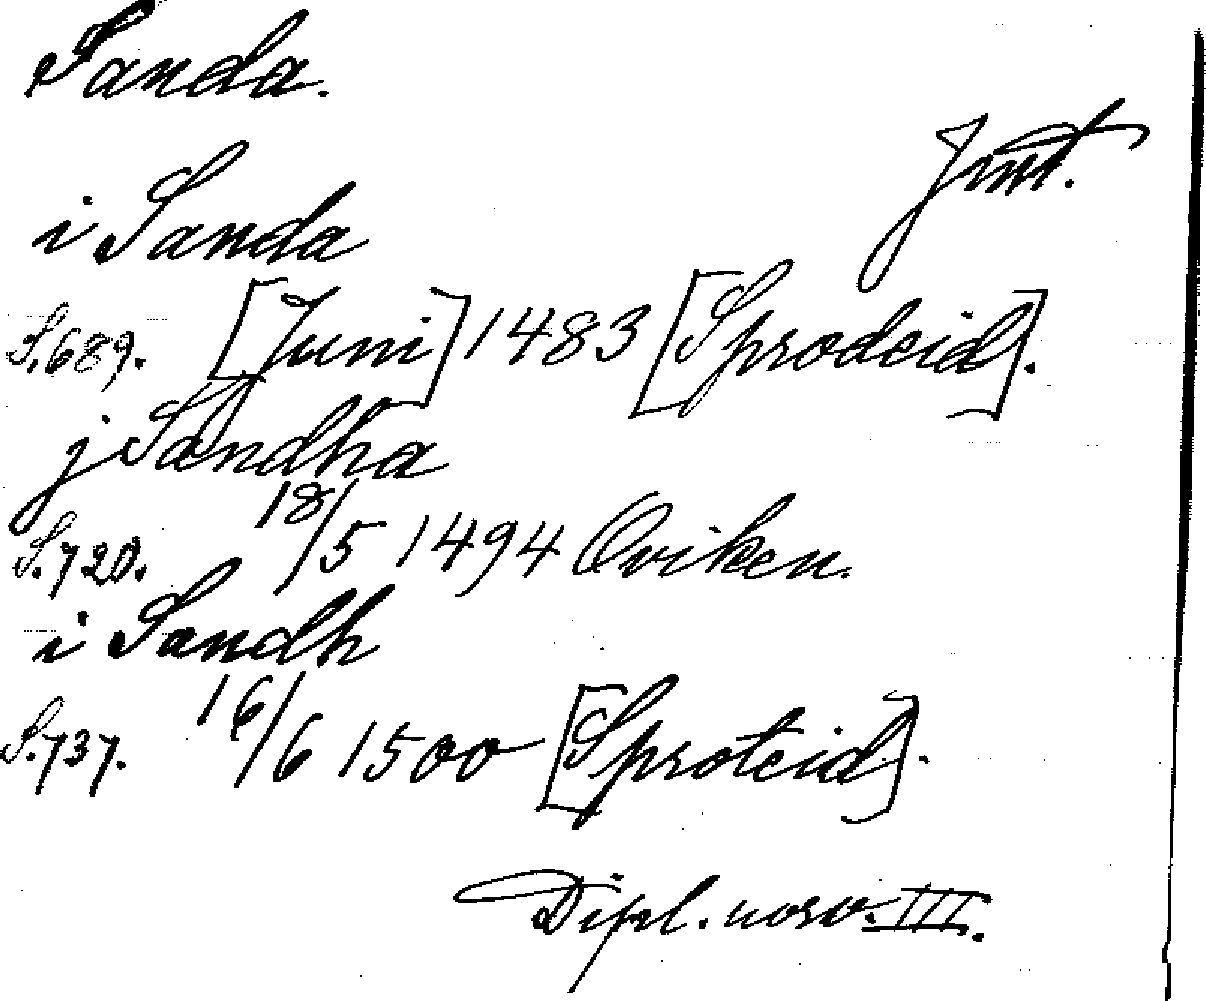 Sanda.
Jmt.
i Sanda
S.689. [Juni] 1483 [Sprodeid].
j Sandha
S.720. 18/5 1494 Oviken.
i Sandh
S.737. 16/6 1500 [Sproteid].
Dipl. norv. III.